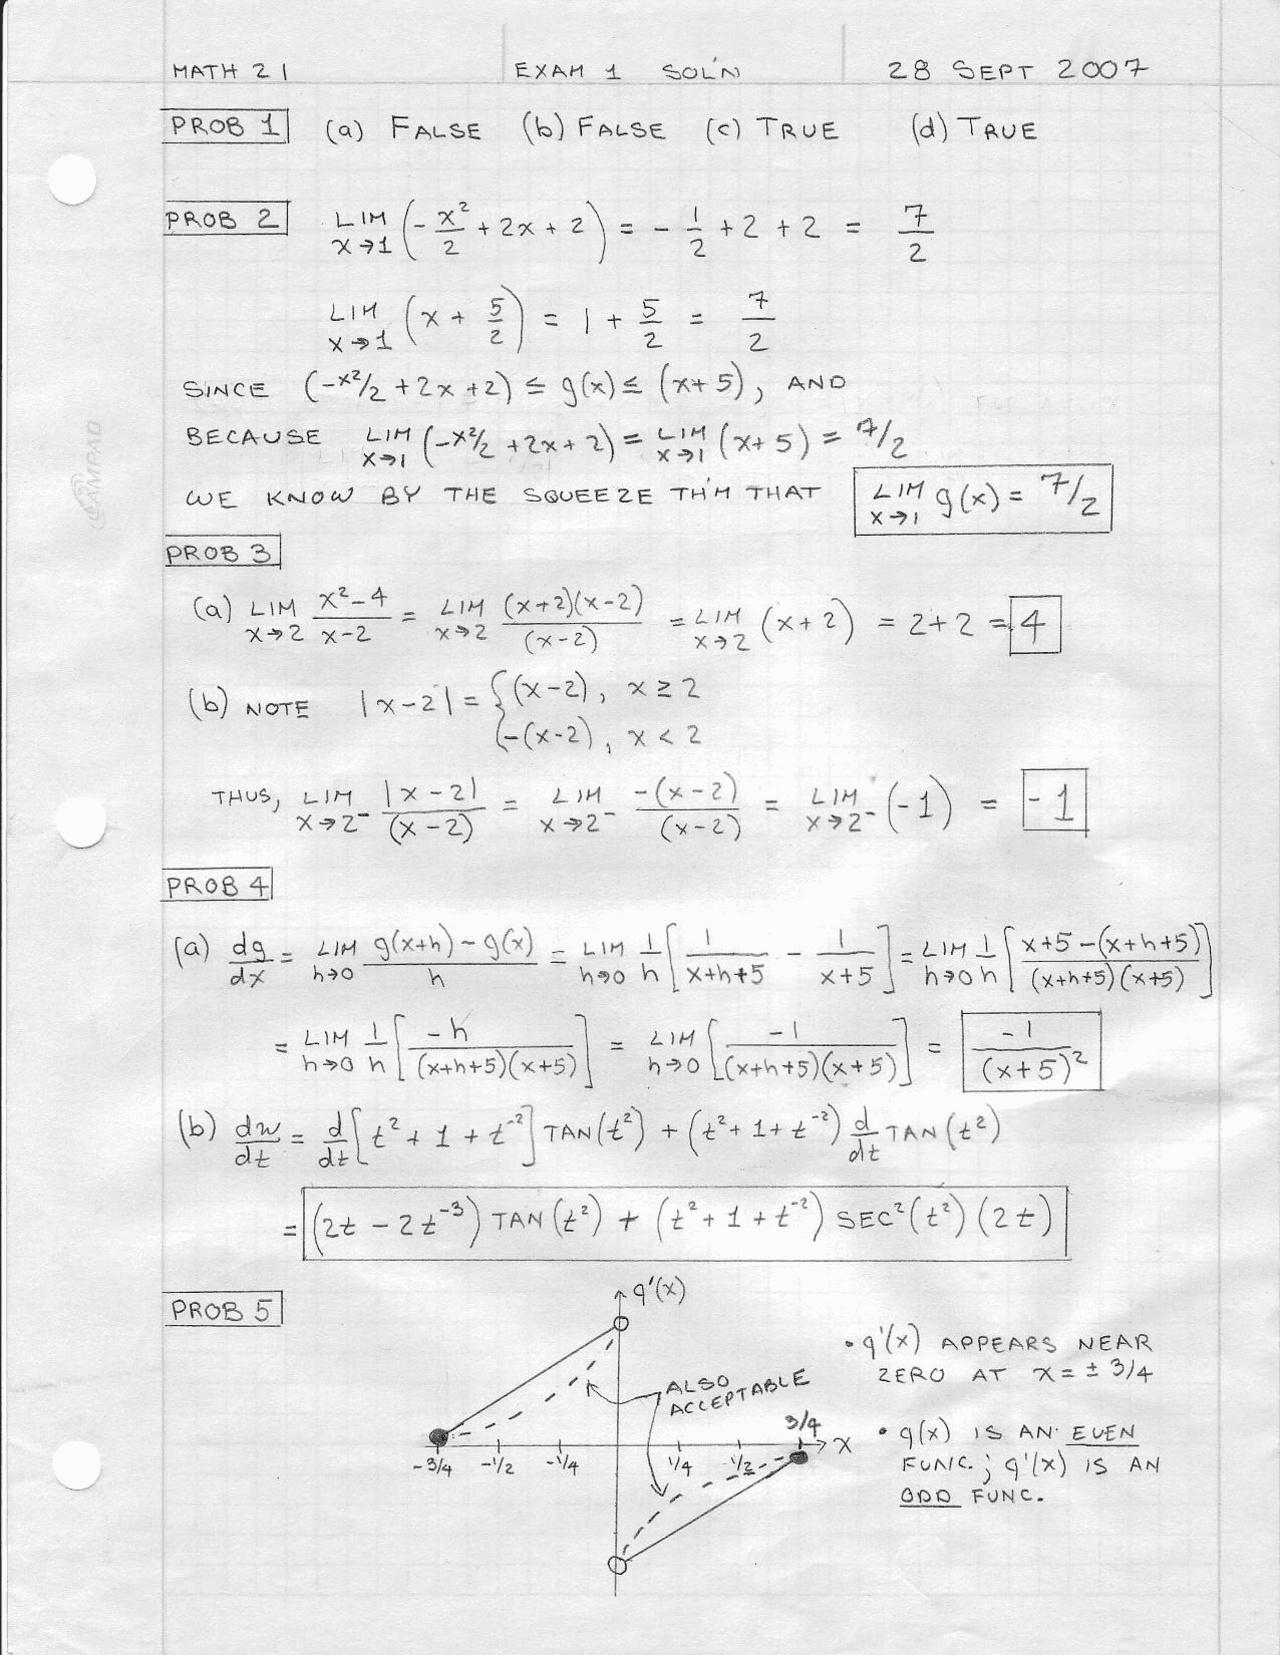 MATH 21 EXAM 1 SOL'N 28 SEPT 2007
PROB 1 (a) FALSE (b) FALSE (c) TRUE (d) TRUE
PROB 2 LIM x→1 (-x²/2 + 2x + 2) = -1/2 + 2 + 2 = 7/2
LIM x→1 (x + 5/2) = 1 + 5/2 = 7/2
SINCE (-x²/2 + 2x + 2) ≤ g(x) ≤ (x+5), AND
BECAUSE LIM x→1 (-x²/2 + 2x + 2) = LIM x→1 (x+5) = 7/2
WE KNOW BY THE SQUEEZE TH'M THAT LIM x→1 g(x) = 7/2
PROB 3
(a) LIM x→2 (x²-4)/(x-2) = LIM x→2 (x+2)(x-2)/(x-2) = LIM x→2 (x+2) = 2+2 = 4
(b) NOTE |x-2| = { (x-2), x ≥ 2
-(x-2), x < 2
THUS, LIM x→2⁻ |x-2|/(x-2) = LIM x→2⁻ -(x-2)/(x-2) = LIM x→2⁻ (-1) = -1
PROB 4
(a) dg/dx = LIM h→0 (g(x+h) - g(x))/h = LIM h→0 1/h [1/(x+h+5) - 1/(x+5)] = LIM h→0 1/h [(x+5-(x+h+5))/((x+h+5)(x+5))]
= LIM h→0 1/h [-h/((x+h+5)(x+5))] = LIM h→0 [-1/((x+h+5)(x+5))] = -1/(x+5)²
(b) dw/dt = d/dt [t² + 1 + t⁻²] TAN(t²) + (t² + 1 + t⁻²) d/dt TAN(t²)
= (2t - 2t⁻³) TAN(t²) + (t² + 1 + t⁻²) SEC²(t²) (2t)
PROB 5
q'(x)
• q'(x) APPEARS NEAR
ZERO AT x = ± 3/4
ALSO
ACCEPTABLE
3/4
x
-3/4 -1/2 -1/4 1/4 1/2
• q(x) IS AN EVEN
FUNC.; q'(x) IS AN
ODD FUNC.
AMPAD